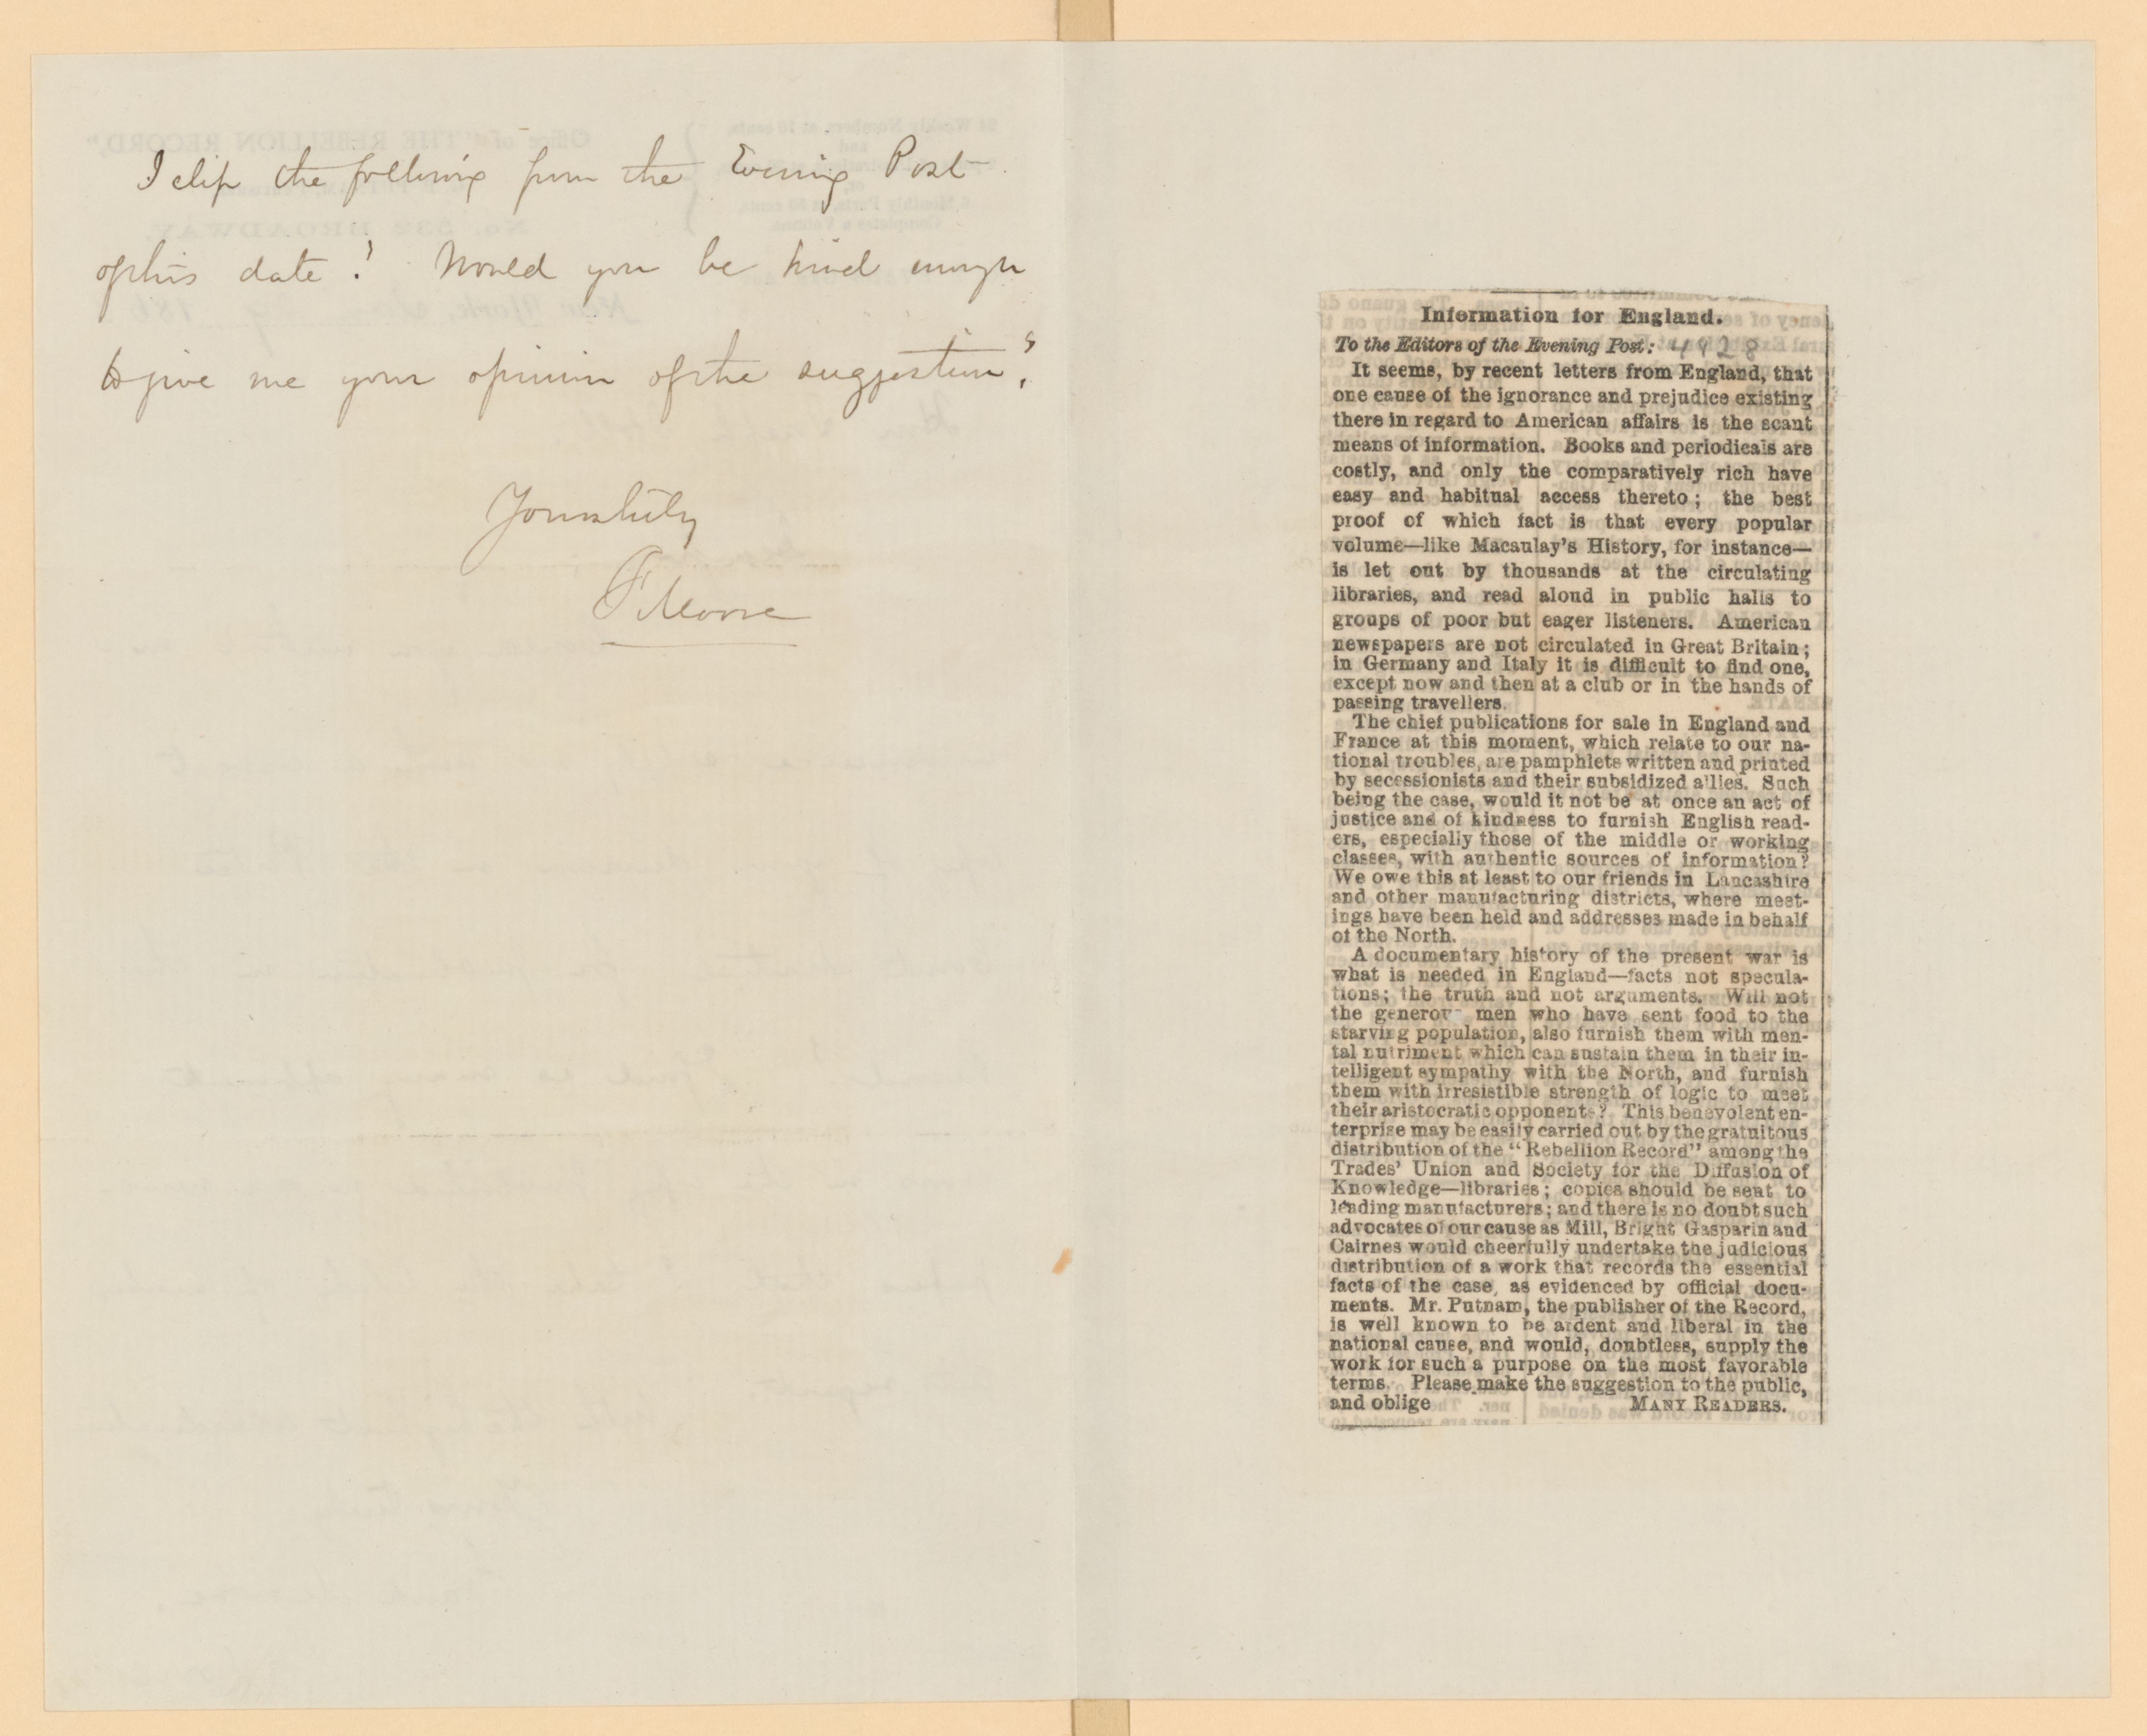 I clip the following from the Evening Post
of this date! Would you be kind enough
to give me your opinion of the suggestion?
Yours truly
F Moore
Information for England.
To the Editors of the Evening Post: 4928
It seems, by recent letters from England, that
one cause of the ignorance and prejudice existing
there in regard to American affairs is the scant
means of information. Books and periodicals are
costly, and only the comparatively rich have
easy and habitual access thereto; the best
proof of which fact is that every popular
volume—like Macaulay's History, for instance—
is let out by thousands at the circulating
libraries, and read aloud in public halls to
groups of poor but eager listeners. American
newspapers are not circulated in Great Britain;
in Germany and Italy it is difficult to find one,
except now and then at a club or in the hands of
passing travellers.
The chief publications for sale in England and
France at this moment, which relate to our na-
tional troubles, are pamphlets written and printed
by secessionists and their subsidized allies. Such
being the case, would it not be at once an act of
justice and of kindness to furnish English read-
ers, especially those of the middle or working
classes, with authentic sources of information?
We owe this at least to our friends in Lancashire
and other manufacturing districts, where meet-
ings have been held and addresses made in behalf
of the North.
A documentary history of the present war is
what is needed in England—facts not specula-
tions; the truth and not arguments. Will not
the generous men who have sent food to the
starving population, also furnish them with men-
tal nutriment which can sustain them in their in-
telligent sympathy with the North, and furnish
them with irresistible strength of logic to meet
their aristocratic opponents? This benevolent en-
terprise may be easily carried out by the gratuitous
distribution of the "Rebellion Record" among the
Trades' Union and Society for the Diffusion of
Knowledge—libraries; copies should be sent to
leading manufacturers; and there is no doubt such
advocates of our cause as Mill, Bright Gasparin and
Cairnes would cheerfully undertake the judicious
distribution of a work that records the essential
facts of the case, as evidenced by official docu-
ments. Mr. Putnam, the publisher of the Record,
is well known to be ardent and liberal in the
national cause, and would, doubtless, supply the
work for such a purpose on the most favorable
terms. Please make the suggestion to the public,
and oblige MANY READERS.